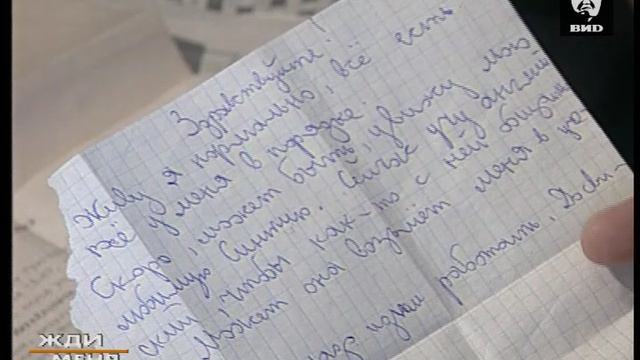 ВИD
Здравствуйте!
Живу я нормально, всё есть
всё у меня в порядке.
Скоро, может быть, увижу мою
любимую Синтию. Сейчас учу англий-
ский, чтобы как-то с ней
Может она возьмёт меня в
работать.
ЖДИ
МЕНЯ